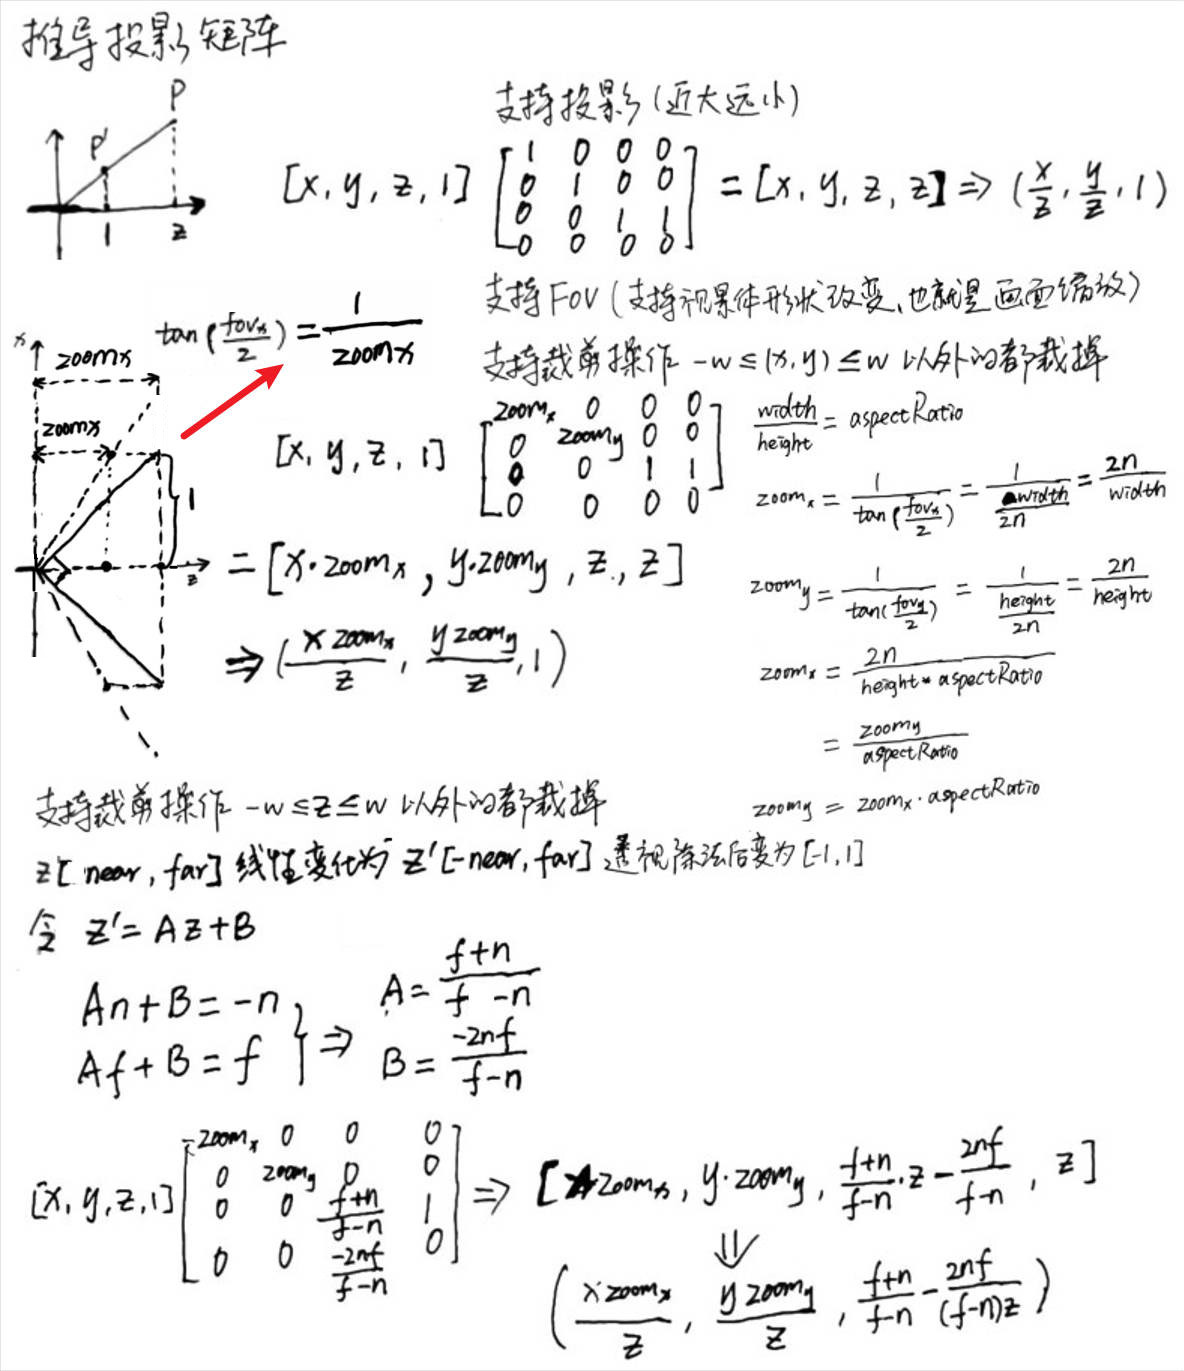 推导投影矩阵
P
P'
1 z
支持投影(近大远小)
[x, y, z, 1] [1 0 0 0
0 1 0 0
0 0 1 1
0 0 0 0] = [x, y, z, z] => (x/z, y/z, 1)
支持FOV(支持视景体形状改变,也就是画面缩放)
tan(fovx/2) = 1/zoomx
x
zoomx
zoomx
1
z
支持裁剪操作 -w≤(x,y)≤w 以外的都裁掉
[x, y, z, 1] [zoomx 0 0 0
0 zoomy 0 0
0 0 1 1
0 0 0 0]
= [x·zoomx, y·zoomy, z, z]
=> (x zoomx/z, y zoomy/z, 1)
width/height = aspectRatio
zoomx = 1/tan(fovx/2) = 1/(width/2n) = 2n/width
zoomy = 1/tan(fovy/2) = 1/(height/2n) = 2n/height
zoomx = 2n/(height * aspectRatio)
= zoomy/aspectRatio
zoomy = zoomx·aspectRatio
支持裁剪操作 -w≤z≤w 以外的都裁掉
z[near, far] 线性变化为 z'[-near, far] 透视除法后变为[-1,1]
令 z'=Az+B
An+B=-n
Af+B=f } => A=(f+n)/(f-n)
B=-2nf/(f-n)
[x, y, z, 1] [zoomx 0 0 0
0 zoomy 0 0
0 0 (f+n)/(f-n) 1
0 0 -2nf/(f-n) 0] => [x zoomx, y·zoomy, (f+n)/(f-n)·z - 2nf/(f-n), z]
(x zoomx/z, y zoomy/z, (f+n)/(f-n) - 2nf/((f-n)z))